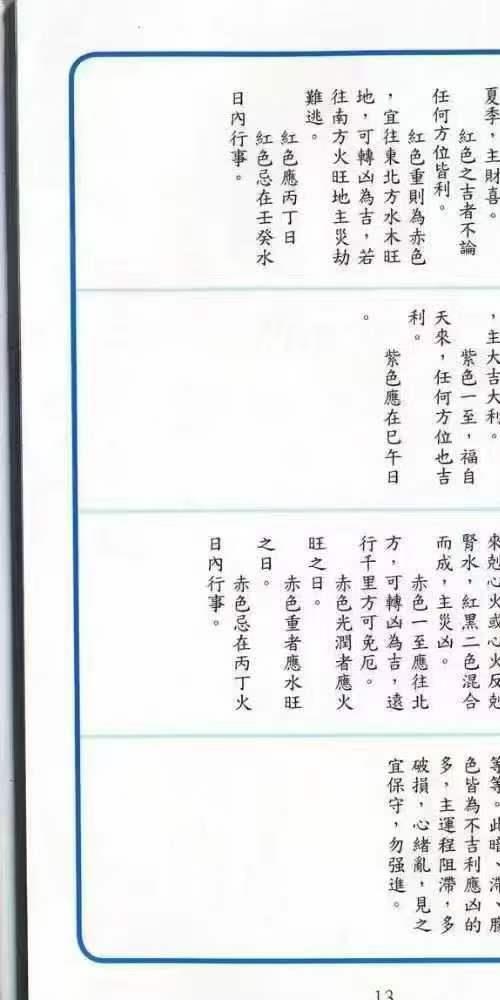 夏季，主財喜。
紅色之吉者不論
任何方位皆利。
紅色重則為赤色
，宜往東北方水木旺
地，可轉凶為吉，若
往南方火旺地主災劫
難逃。
紅色應丙丁日
紅色忌在壬癸水
日內行事。
，主大吉大利。
紫色一至，福自
天來，任何方位也吉
利。
紫色應在巳午日
。
來剋心火或心火反剋
腎水，紅黑二色混合
而成，主災凶。
赤色一至應往北
方，可轉凶為吉，遠
行千里方可免厄。
赤色光潤者應火
旺之日。
赤色重者應水旺
之日。
赤色忌在丙丁火
日內行事。
等等。此暗、滯、朦
色皆為不吉利應凶的
多，主運程阻滯，多
破損，心緒亂，見之
宜保守，勿强進。
13